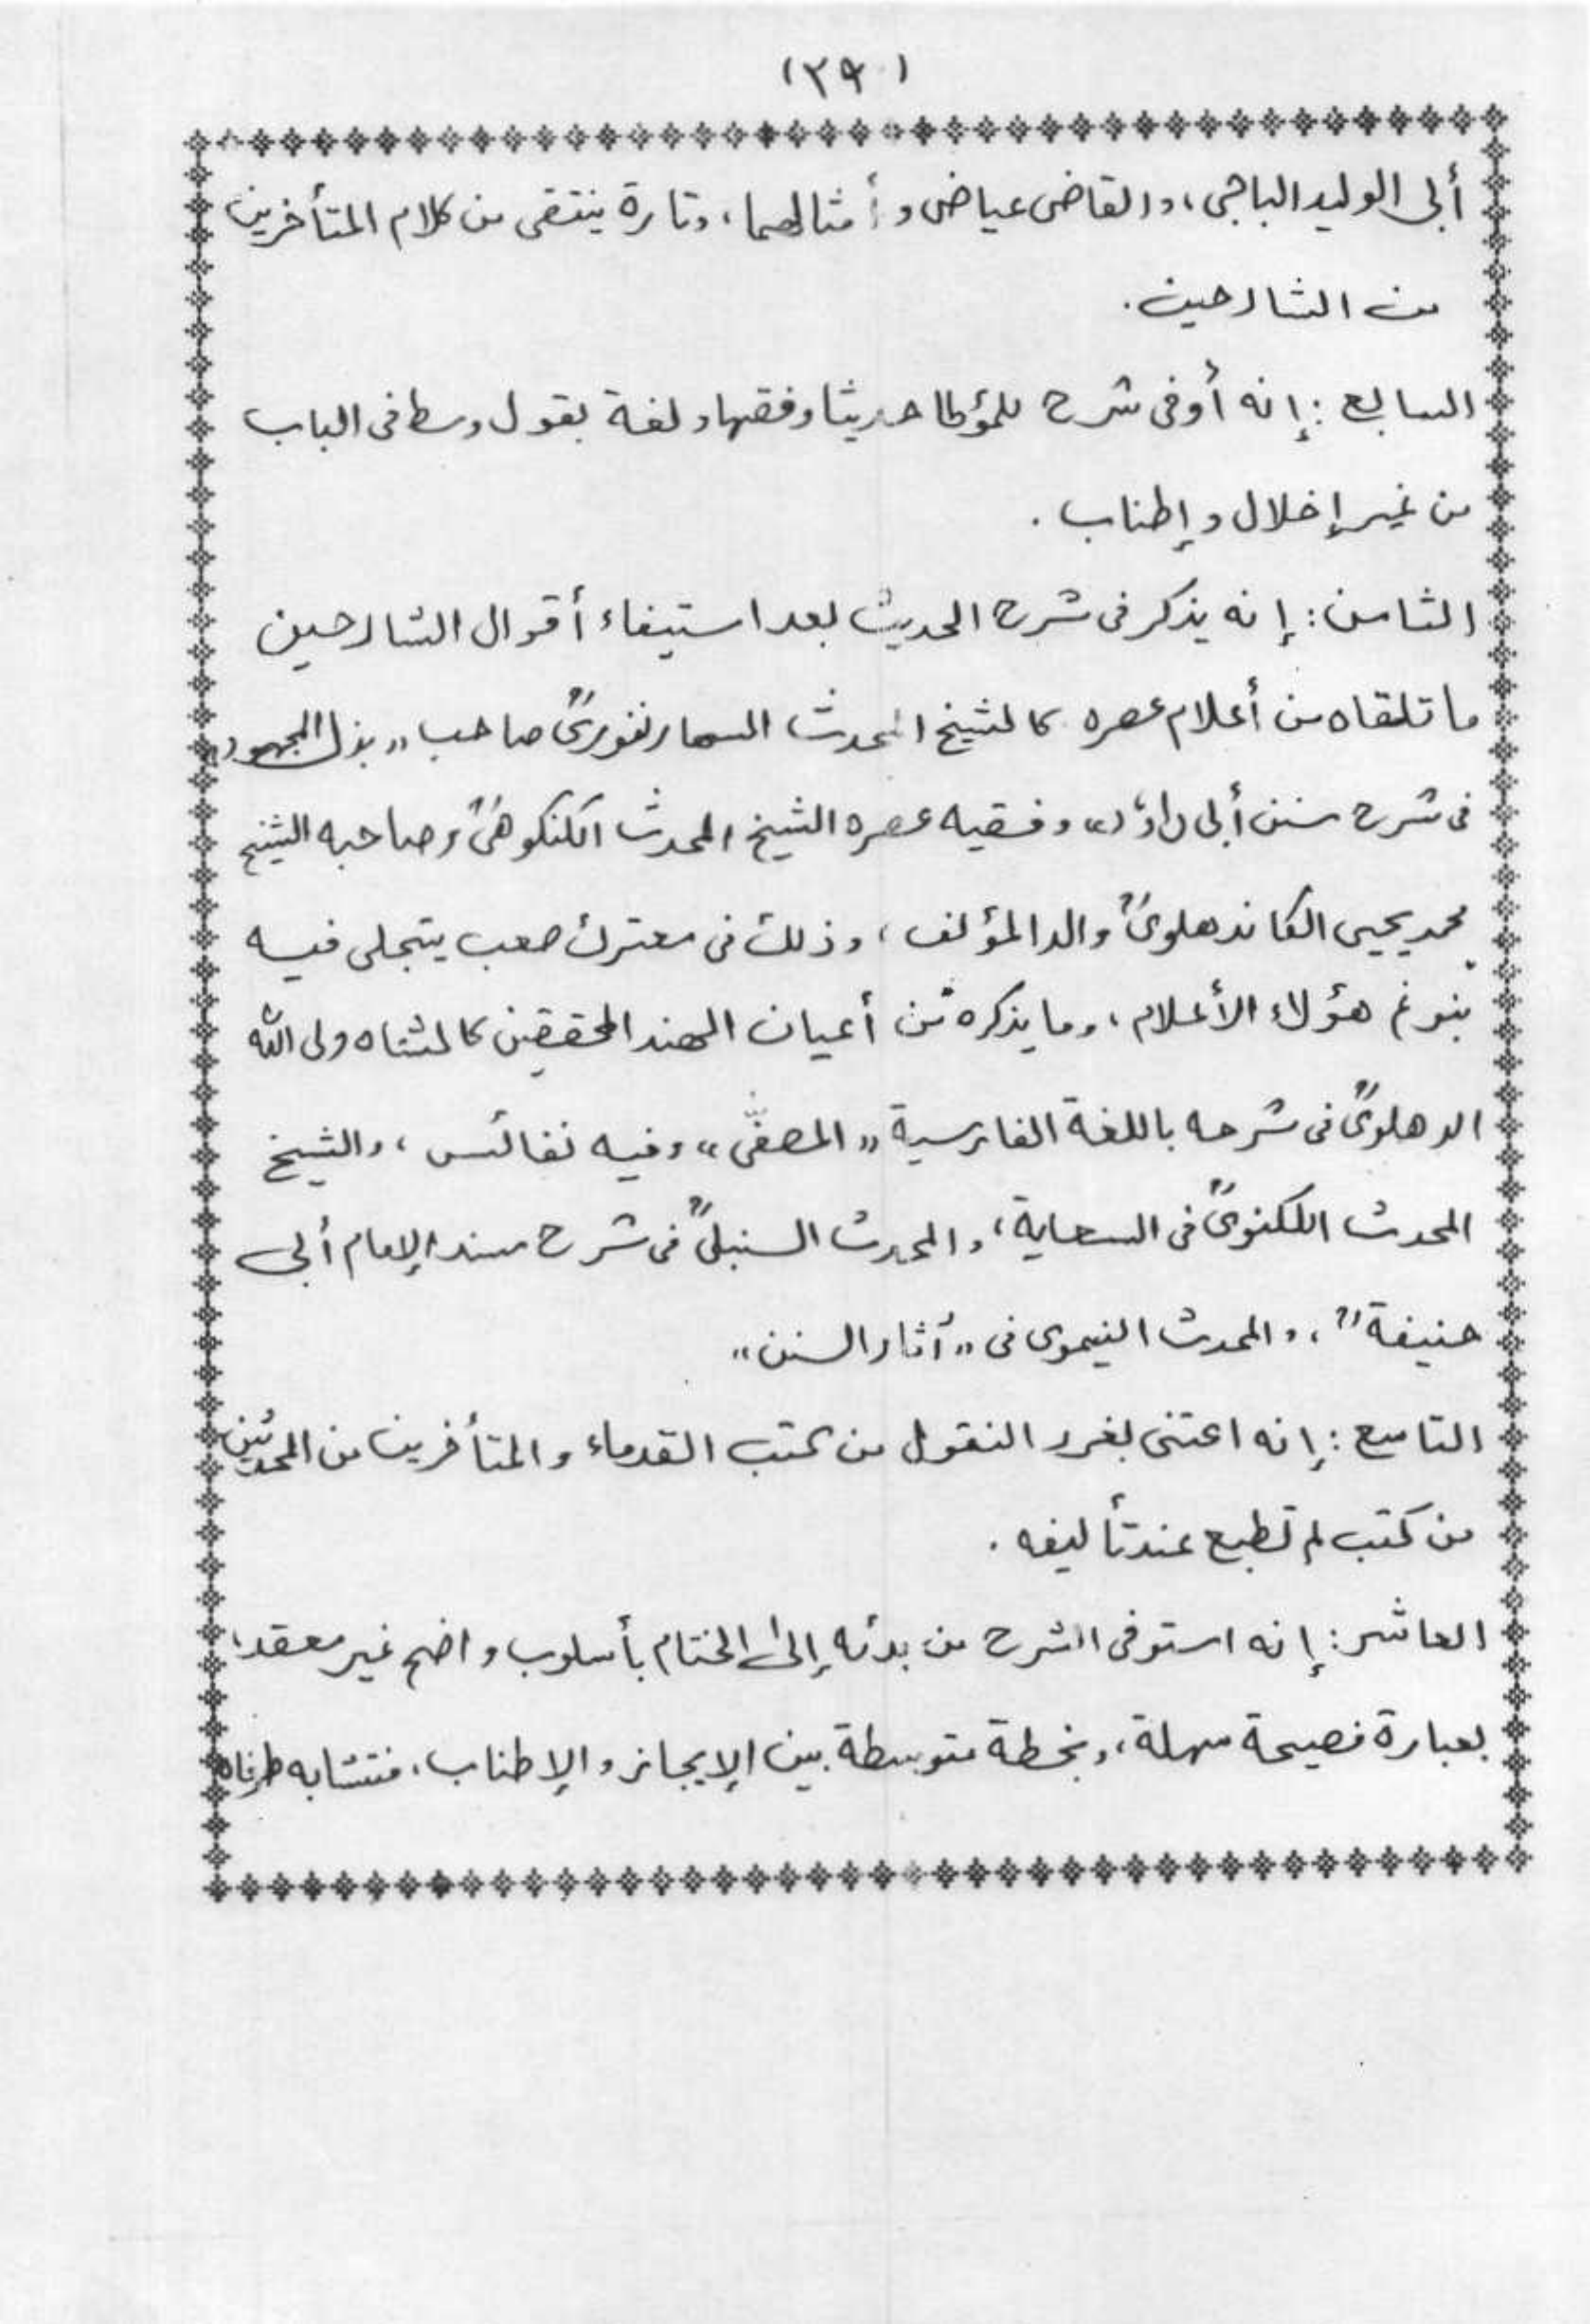 (٣٩)
أبى الوليد الباجى، والقاضى عياض وأمثالهما، وتارة ينتقى من كلام المتأخرين
من الشارحين.
السابع: إنه أوفى شرح للمؤطا حديثا وفقها ولغة بقول وسط فى الباب
من غير إخلال وإطناب.
الثامن: إنه يذكر فى شرح الحديث بعد استيفاء أقوال الشارحين
ما تلقاه من أعلام عصره كالشيخ المحدث السهارنفورىؒ صاحب "بذل المجهود
فى شرح سنن أبى داؤد" وفقيه عصره الشيخ المحدث الكنكوهىؒ وصاحبه الشيخ
محمد يحيى الكاندهلوىؒ والد المؤلف، وذلك فى معترك صعب يتجلى فيه
نبوغ هؤلاء الأعلام، وما يذكره من أعيان الهند المحققين كالشاه ولى الله
الدهلوىؒ فى شرحه باللغة الفارسية "المصفّى" وفيه نفائس، والشيخ
المحدث اللكنوىؒ فى السعاية، والمحدث السنبلىؒ فى شرح مسند الإمام أبى
حنيفةؒ، والمحدث النيموى فى "آثار السنن"
التاسع: إنه اعتنى بغرر النقول من كتب القدماء والمتأخرين من المحدثين
من كتب لم تطبع عند تأليفه.
العاشر: إنه استوفى الشرح من بدئه إلى الختام بأسلوب واضح غير معقد،
بعبارة فصيحة سهلة، وبخطة متوسطة بين الإيجاز والإطناب، فتشابه طرفاه